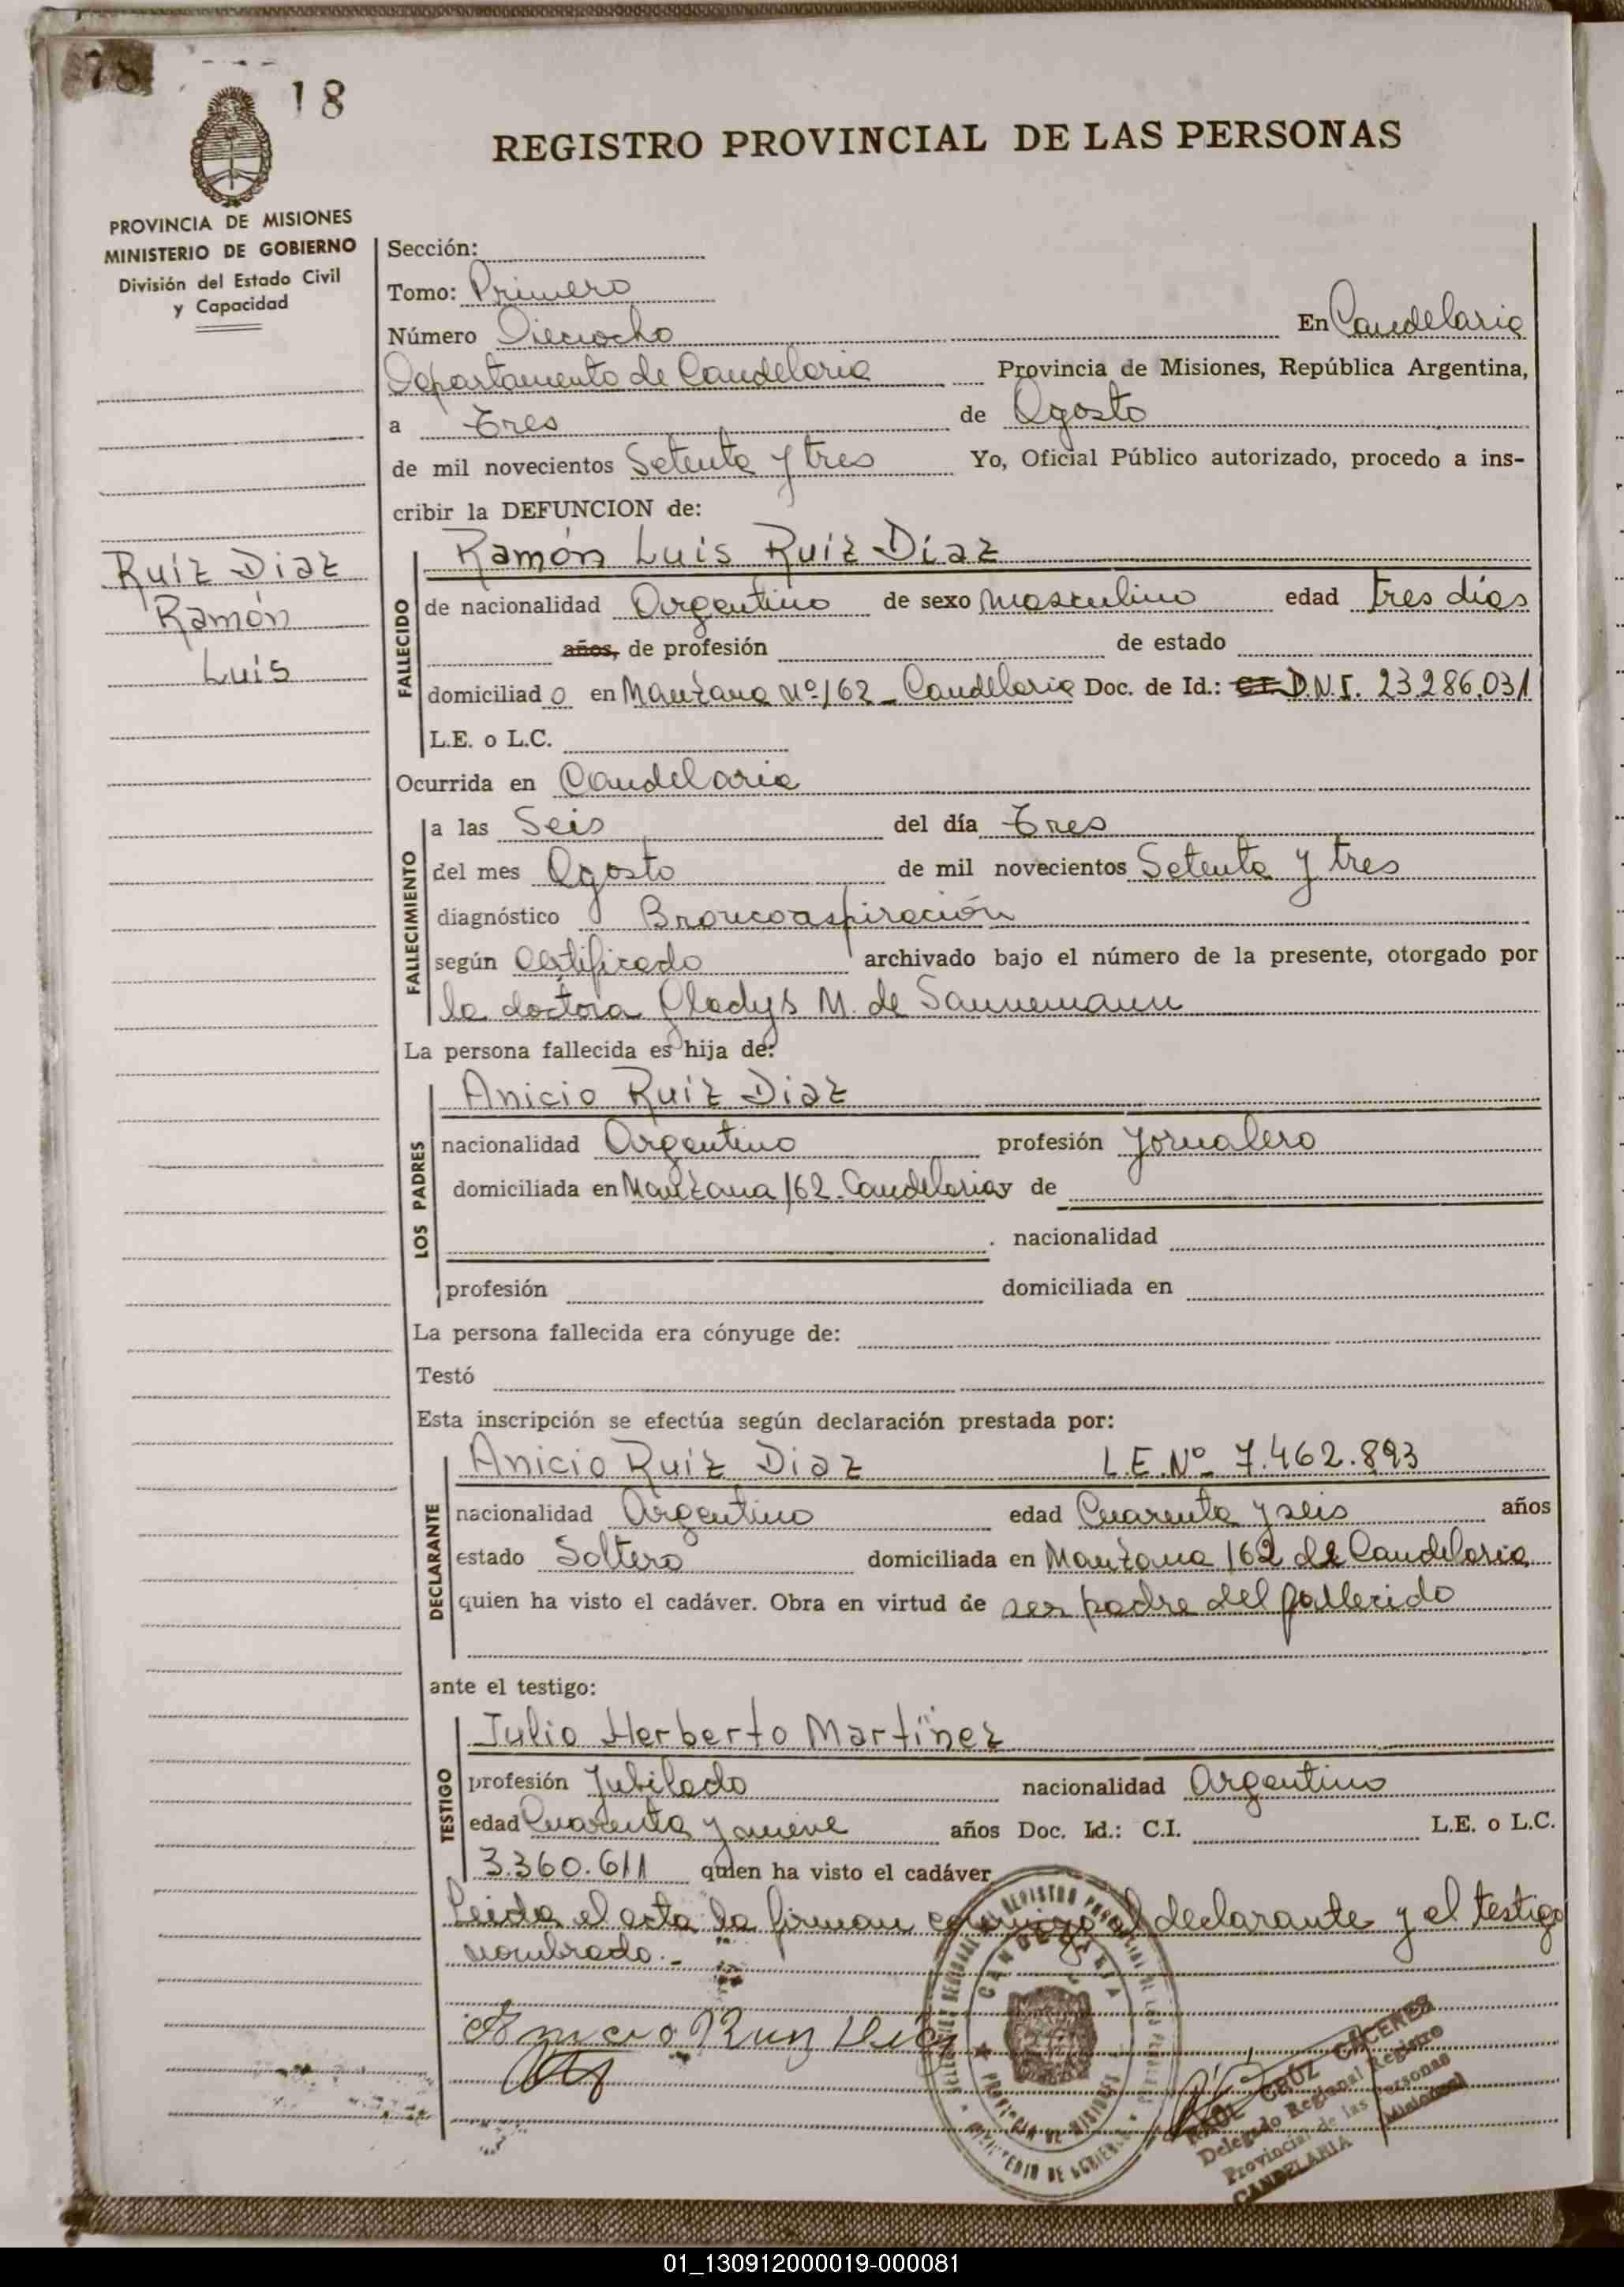 78
18
REGISTRO PROVINCIAL DE LAS PERSONAS
PROVINCIA DE MISIONES
MINISTERIO DE GOBIERNO
División del Estado Civil
y Capacidad
Ruíz Diaz
Ramón
Luis
Sección:
Tomo: Primero
Número Dieciocho En Candelaria
Departamento de Candelaria Provincia de Misiones, República Argentina,
a Tres de Agosto
de mil novecientos Setenta y tres Yo, Oficial Público autorizado, procedo a ins-
cribir la DEFUNCION de:
Ramón Luis Ruiz Díaz
FALLECIDO
de nacionalidad Argentino de sexo masculino edad tres días
años, de profesión de estado
domiciliado en Manzana Nº 162 - Candelaria Doc. de Id.: C.I. D.N.I. 23.286.031
L.E. o L.C.
Ocurrida en Candelaria
FALLECIMIENTO
a las Seis del día Tres
del mes Agosto de mil novecientos Setenta y tres
diagnóstico Broncoaspiración
según Certificado archivado bajo el número de la presente, otorgado por
la doctora Gladys M. de Sannemann
La persona fallecida es hija de:
LOS PADRES
Anicio Ruíz Diaz
nacionalidad Argentino profesión Jornalero
domiciliada en Manzana 162 - Candelaria y de
nacionalidad
profesión domiciliada en
La persona fallecida era cónyuge de:
Testó
Esta inscripción se efectúa según declaración prestada por:
DECLARANTE
Anicio Ruíz Diaz L.E. Nº 7.462.893
nacionalidad Argentino edad Cuarenta y seis años
estado Soltero domiciliada en Manzana 162 de Candelaria
quien ha visto el cadáver. Obra en virtud de ser padre del fallecido
ante el testigo:
TESTIGO
Julio Herberto Martínez
profesión Jubilado nacionalidad Argentino
edad Cuarenta y nueve años Doc. Id.: C.I. L.E. o L.C.
3.360.611 quien ha visto el cadáver
Leida el acta la firman conmigo el declarante y el testigo
nombrado.-
Anicio Ruiz Diaz
CANDELARIA
PROVINCIA DE MISIONES
RAUL CRUZ CACERES
Delegado Regional Registro
Provincial de las Personas
CANDELARIA (Misiones)
01_130912000019-000081